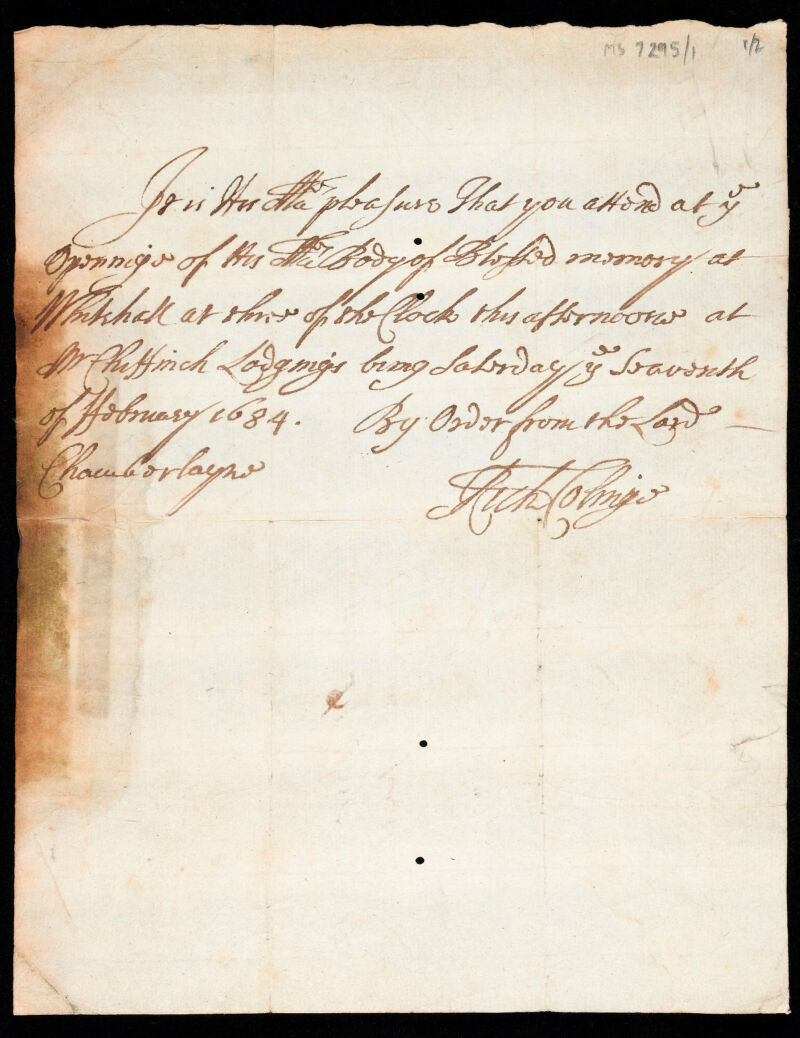 MS 7295/1 1/2
It is His Ma^ties pleasure That you attend at y^e
Openinge of His Ma^ties Body of Blessed memory at
Whitehall at three of the Clock this afternoone at
Mr Chiffinch Lodgings being Saterday y^e Seaventh
of February 1684. By Order from the Lord
Chamberlayne
Rich Colinge